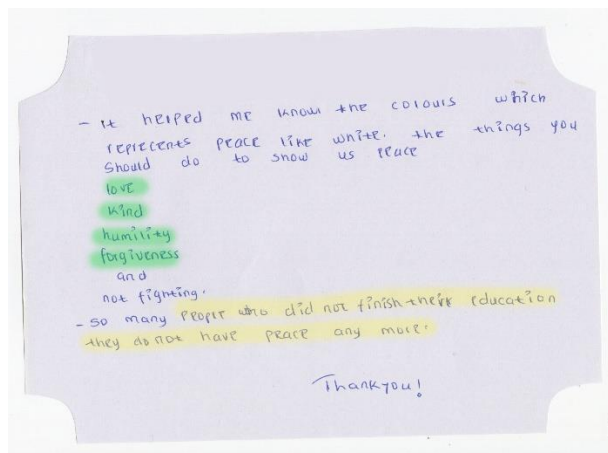 - It helped me know the colours which
represents peace like white. the things you
should do to show us peace
love
kind
humility
forgiveness
and
not fighting.
- so many people who did not finish their education
they do not have peace any more.
Thankyou!